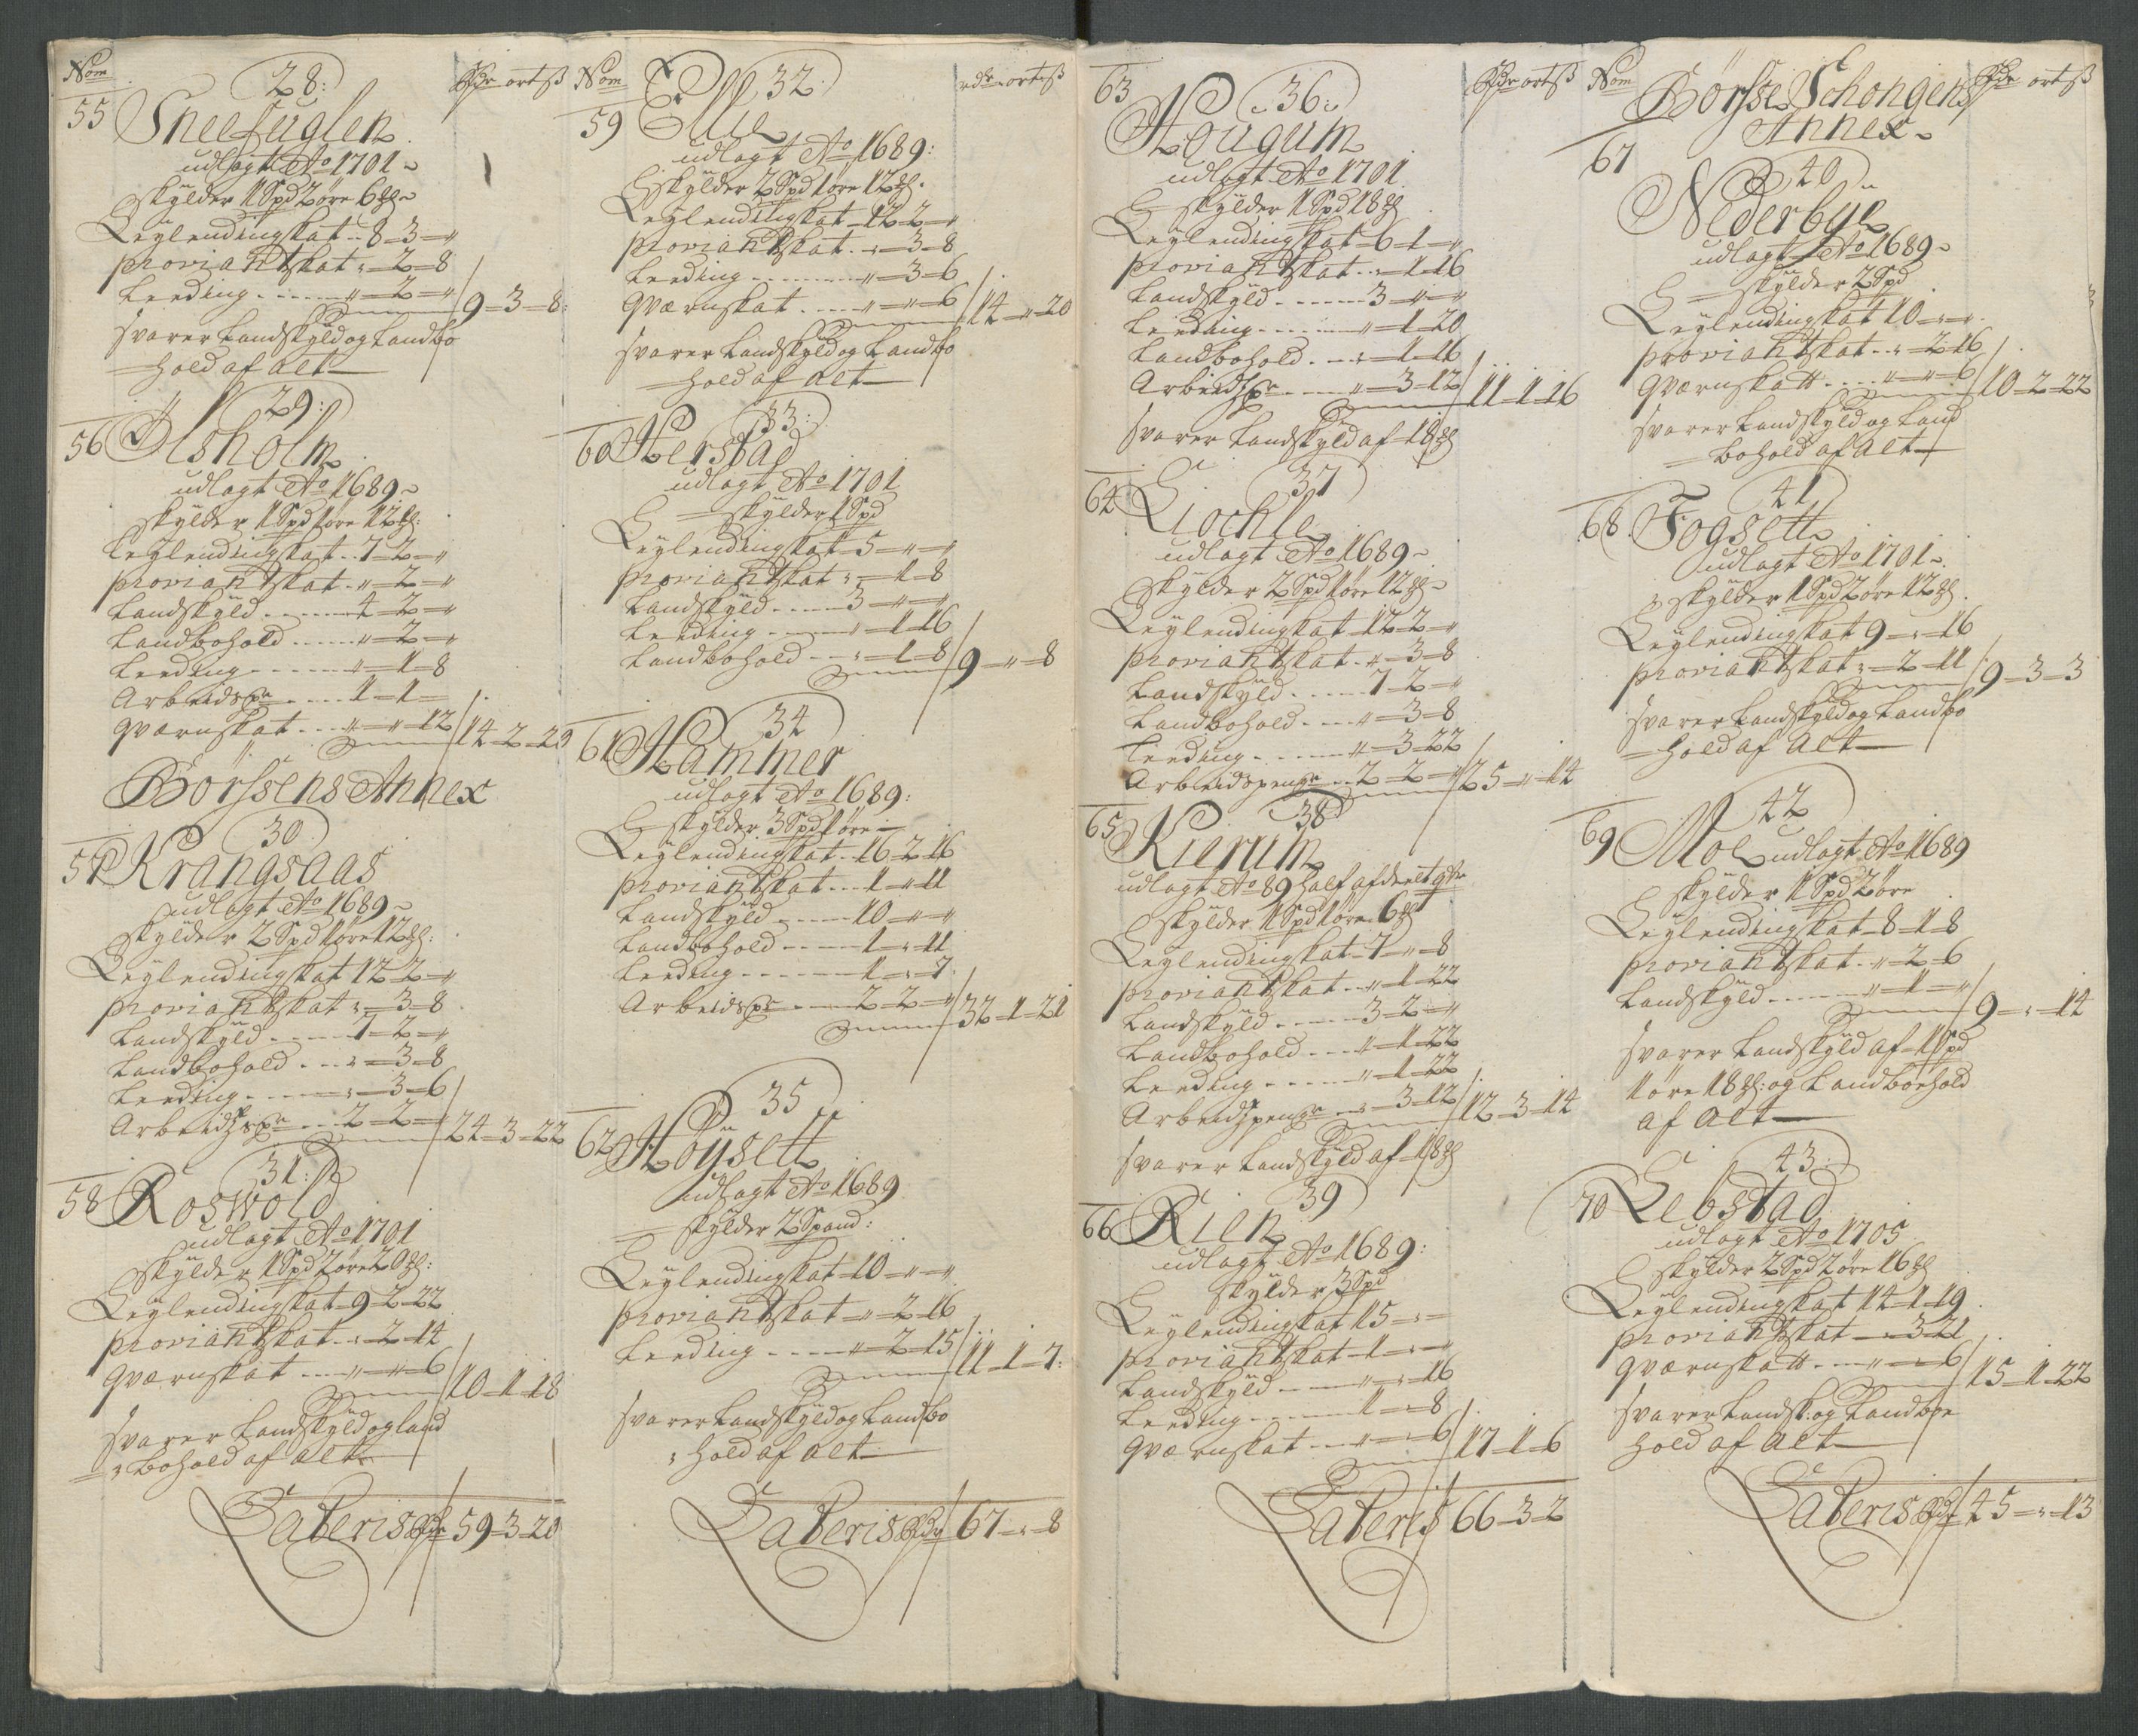 Nom
28:
Rdr ort ß
55 Sneefuglen
udlagt Ao 1701
Skylder 1 Spd 2 öre 6 ß
Leylendingskat 8 - 3 - "
proviantskat " - 2 - 8
Leeding " - 2 - " 9 - 3 - 8:
svarer Landskyld og Landbo
hold af alt
29:
56 Ilsholm
udlagt Ao 1689
Skylder 1 Spd 1 öre 12 ß:
Leylendingskat 7 - 2 - "
proviantskat " - 2 - "
Landskyld 4 - 2 - "
Landbohold " - 2 - "
Leeding " - 1 - 8
Arbeidspe 1 - 1 -
qværnskat " - " - 12 14 - 2 - 20
Börssens Annex
30
57 Krangsaas
udlagt Ao 1689
Skylder 2 Spd 1 öre 12 ß:
Leylendingskat 12 - 2 - "
proviantskat " - 3 - 8
Landskyld 7 - 2 - "
Landbohold " - 3 - 8
Leeding " - 3 - 6
Arbeidspe 2 - 2 - " 24 - 3 - 22
31:
58 Roswold
udlagt Ao 1701
Skylder 1 Spd 2 öre 20 ß:
Leylendingskat 9 - 2 - 22
proviantskat " - 2 - 14
qværnskat " - " - 6 10 - 1 - 18
svarer Landskyld og land
bohold af alt
Lateris Rdr 59 - 3 - 20
Nom
32
rdr ort ß
59 Ellie
udlagt Ao 1689:
Skylder 2 Spd 1 öre 12 ß.
Leylendingskat 12 - 2 - "
proviantskat " - 3 - 8
Leeding " - 3 - 6
qværnskat " - " - 6 14 - " - 20
svarer Landskyld og Landbo
hold af alt
33:
60 Herstad
udlagt Ao 1701
Skylder 1 Spd
Leylendingskat 5 - " - "
proviantskat " - 1 - 8
Landskyld 3 - " - "
Leeding " - 1 - 16
Landbohold " - 1 - 8 9 - " - 8
34
61 Hammer
udlagt Ao 1689:
Skylder 3 Spd 1 öre
Leylendingskat 16 - 2 - 16
proviantskat 1 - " - 11
Landskyld 10 - " - "
Landbohold 1 - " - 11
Leeding 1 - " - 7
Arbeidspe 2 - 2 - " 32 - 1 - 21
35
62 Höysett
udlagt Ao 1689
Skylder 2 Spand:
Leylendingskat 10 - " - "
proviantskat " - 2 - 16
Leeding " - 2 - 15 11 - 1 - 7:
svarer Landskyld og Landbo
hold af alt
Lateris Rdr 67 - " - 8
36:
Rdr ort ß
63 Hougum
udlagt Ao 1701
Skylder 1 Spd 18 ß
Leylendingskat 6 - 1 - "
proviantskat " - 1 - 16
Landskyld 3 - " - "
Leeding " - 1 - 20
Landbohold " - 1 - 16
Arbeidspe " - 3 - 12 11 - 1 - 16
svarer Landskyld af 18 ß
37
64 Liochle
udlagt Ao 1689
Skylder 2 Spd 1 öre 12 ß
Leylendingskat 12 - 2 - "
proviantskat " - 3 - 8
Landskyld 7 - 2 - "
Landbohold " - 3 - 8
Leeding " - 3 - 22
Arbeidspenge 2 - 2 - " 25 - " - 14
38
65 Kierum
udlagt Ao 89 half afdeelt
Skylder 1 Spd 1 öre 6 ß
Leylendingskat 7 - " - 8
proviantskat " - 1 - 22
Landskyld 3 - 2 - "
Landbohold " - 1 - 22
Leeding " - 1 - 22
Arbeidspenge " - 3 - 12 12 - 3 - 14
svarer Landskyld af 18 ß
39
66 Rien
udlagt Ao 1689:
Skylder 3 Spd
Leylendingskat 15 - " -
proviantskat 1 - " - "
Landskyld " - " - 16
Leeding 1 - " - 8
qværnskat " - " - 6 17 - 1 - 6
Lateris 66 - 3 - 2
Nom
Börsse Schongens
Rdr ort ß
Annex
40
67 Nederbye
udlagt Ao 1689
Skylder 2 Spd
Leylendingskat 10 - " - "
proviantskat " - 2 - 16
qværnskatt " - " - 6 10 - 2 - 22
svarer Landskyld og Land
bohold af alt
41
68. Fogsett
udlagt Ao 1701
Skylder 1 Spd 2 öre 12 ß.
Leylendingskat 9 - " - 16
proviantskat " - 2 - 11 9 - 3 - 3
svarer Landskyld og Landbo
hold af alt
42
69 Moe udlagt Ao 1689
Skylder 1 Spd 2 öre
Leylendingskat 8 - 1 - 8
proviantskat " - 2 - 6
Landskyld " - 1 - " 9 - " - 14
svarer Landskyld af 1 Spd
1 öre 18 ß: og Landboehold
af alt
43
70 Lebstad
udlagt Ao 1705
Skylder 2 Spd 2 öre 16 ß
Leylendingskat 14 - 1 - 19
proviantskat " - 3 - 21
qværnskatt " - " - 6 15 - 1 - 22
svarer Landsk: og Landboe
hold af alt
Lateris Rdr 45 - " - 13